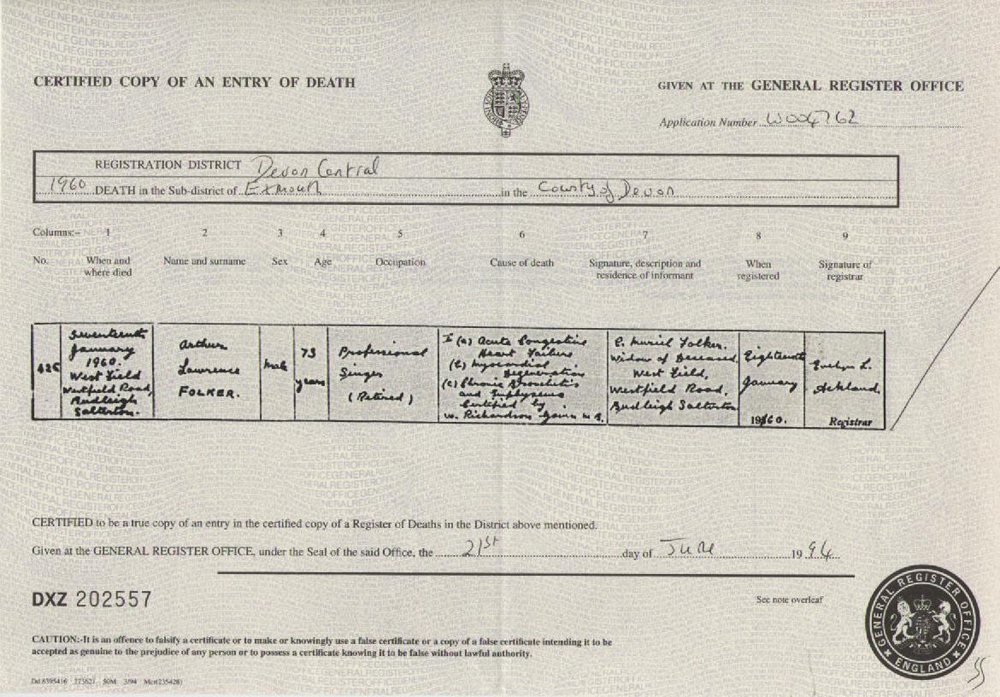 CERTIFIED COPY OF AN ENTRY OF DEATH
GIVEN AT THE GENERAL REGISTER OFFICE
Application Number W004762
REGISTRATION DISTRICT Devon Central
1960 DEATH in the Sub-district of Exmouth in the County of Devon
Columns:- 1 2 3 4 5 6 7 8 9
No. When and where died Name and surname Sex Age Occupation Cause of death Signature, description and residence of informant When registered Signature of registrar
Seventeenth
January
1960.
West Field
Westfield Road,
Budleigh
Salterton.
Arthur
Lawrence
FOLKER.
Male
73
years
Professional
Singer
(Retired)
I (a) Acute Congestive
Heart Failure
(b) Myocardial
Degeneration
(c) Chronic Bronchitis
and Emphysema
Certified by
W. Richardson
P. Muriel Folker.
Widow of Deceased
West Field,
Westfield Road,
Budleigh Salterton
Eighteenth
January
1960.
Evelyn L.
Ackland.
Registrar
CERTIFIED to be a true copy of an entry in the certified copy of a Register of Deaths in the District above mentioned.
Given at the GENERAL REGISTER OFFICE, under the Seal of the said Office, the 21st day of June 1994
DXZ 202557
See note overleaf
CAUTION:-It is an offence to falsify a certificate or to make or knowingly use a false certificate or a copy of a false certificate intending it to be
accepted as genuine to the prejudice of any person or to possess a certificate knowing it to be false without lawful authority.
GENERAL REGISTER OFFICE
ENGLAND